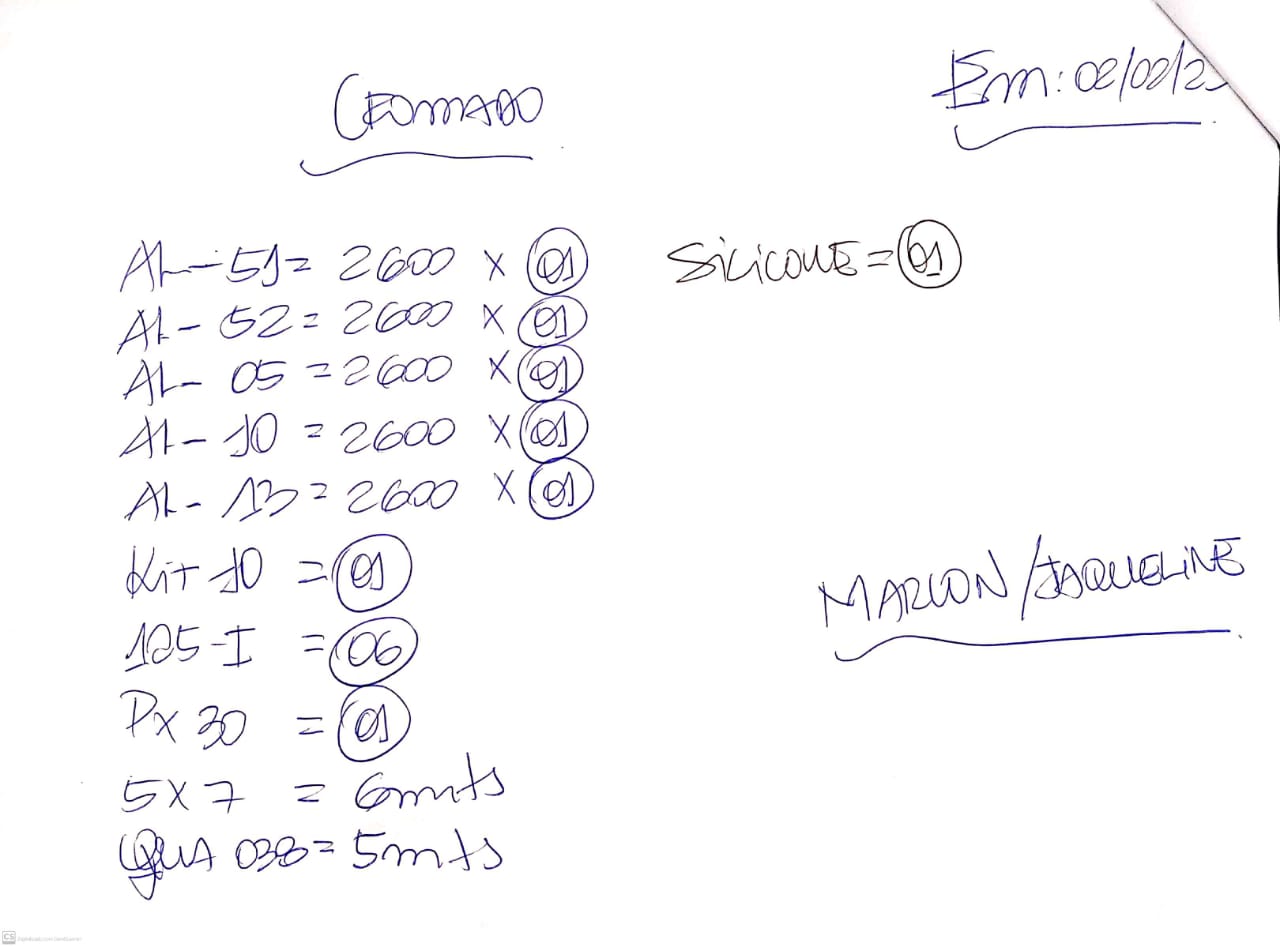 CROMADO
Em: 02/02/2
AL-51= 2600 x 01
SILICONE = 01
AL- 52= 2600 x 01
AL- 05 = 2600 x 01
AL- 10 = 2600 x 01
AL- 13= 2600 x 01
Kit 10 = 01
MARLON/JAQUELINE
125-I = 06
Px 30 = 01
5x7 = 6mts
QUA 038= 5mts
CS